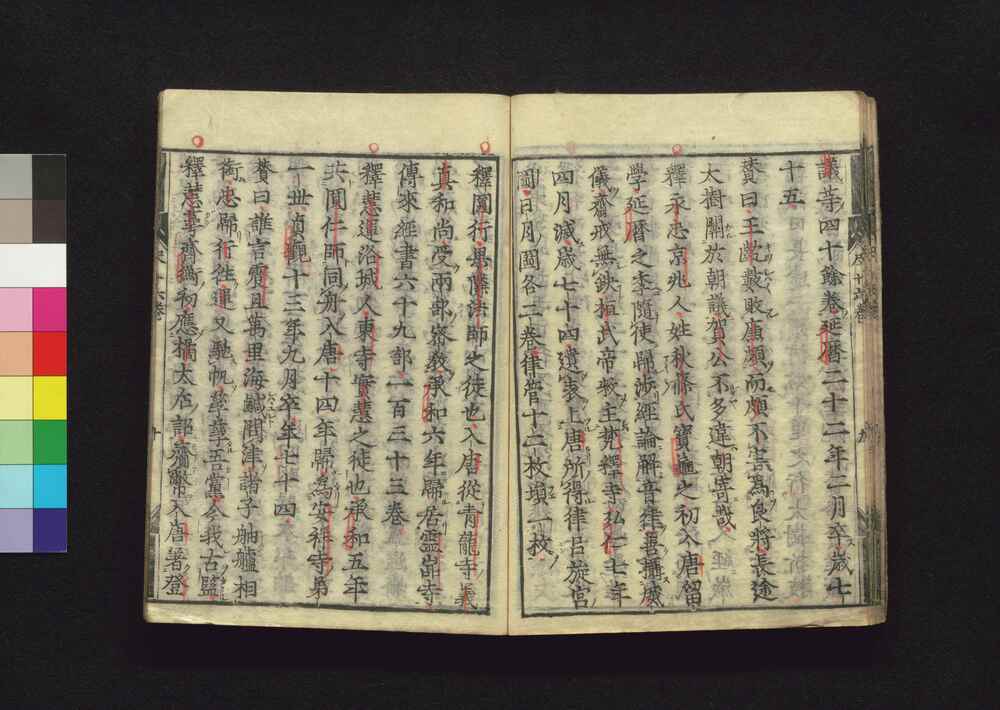 議等四十餘卷延曆二十二年二月卒歲七
十五
贊曰王訖數敗庸頗而頗不害爲良將長途
大樹關於朝議賀公不多違朝寄哉
釋永忠京兆人姓秋篠氏寶龜之初入唐留
學延曆之季隨使歸涉經論解音律善攝威
儀齋戒無缺桓武帝敕主梵釋寺弘仁七年
四月滅歲七十四遺表上唐所得律呂旋宮
圖日月圖各二卷律管十二枚塤一枚
釋圓行果隣法師之徒也入唐從青龍寺義
眞和尚受兩部密教承和六年歸居靈嵓寺
傳來經書六十九部一百三十三卷
釋慧運洛城人東寺實慧之徒也承和五年
共圓仁師同舟入唐十四年歸爲安祥寺第
一世貞觀十三年九月卒年七十四
贊曰誰言震旦萬里海鹹問津諸子舳艫相
銜忠歸行往運又馳帆蓽蓽吾黨今我古監
釋慧蕚齊衡初應橘太后詔齎幣入唐著登